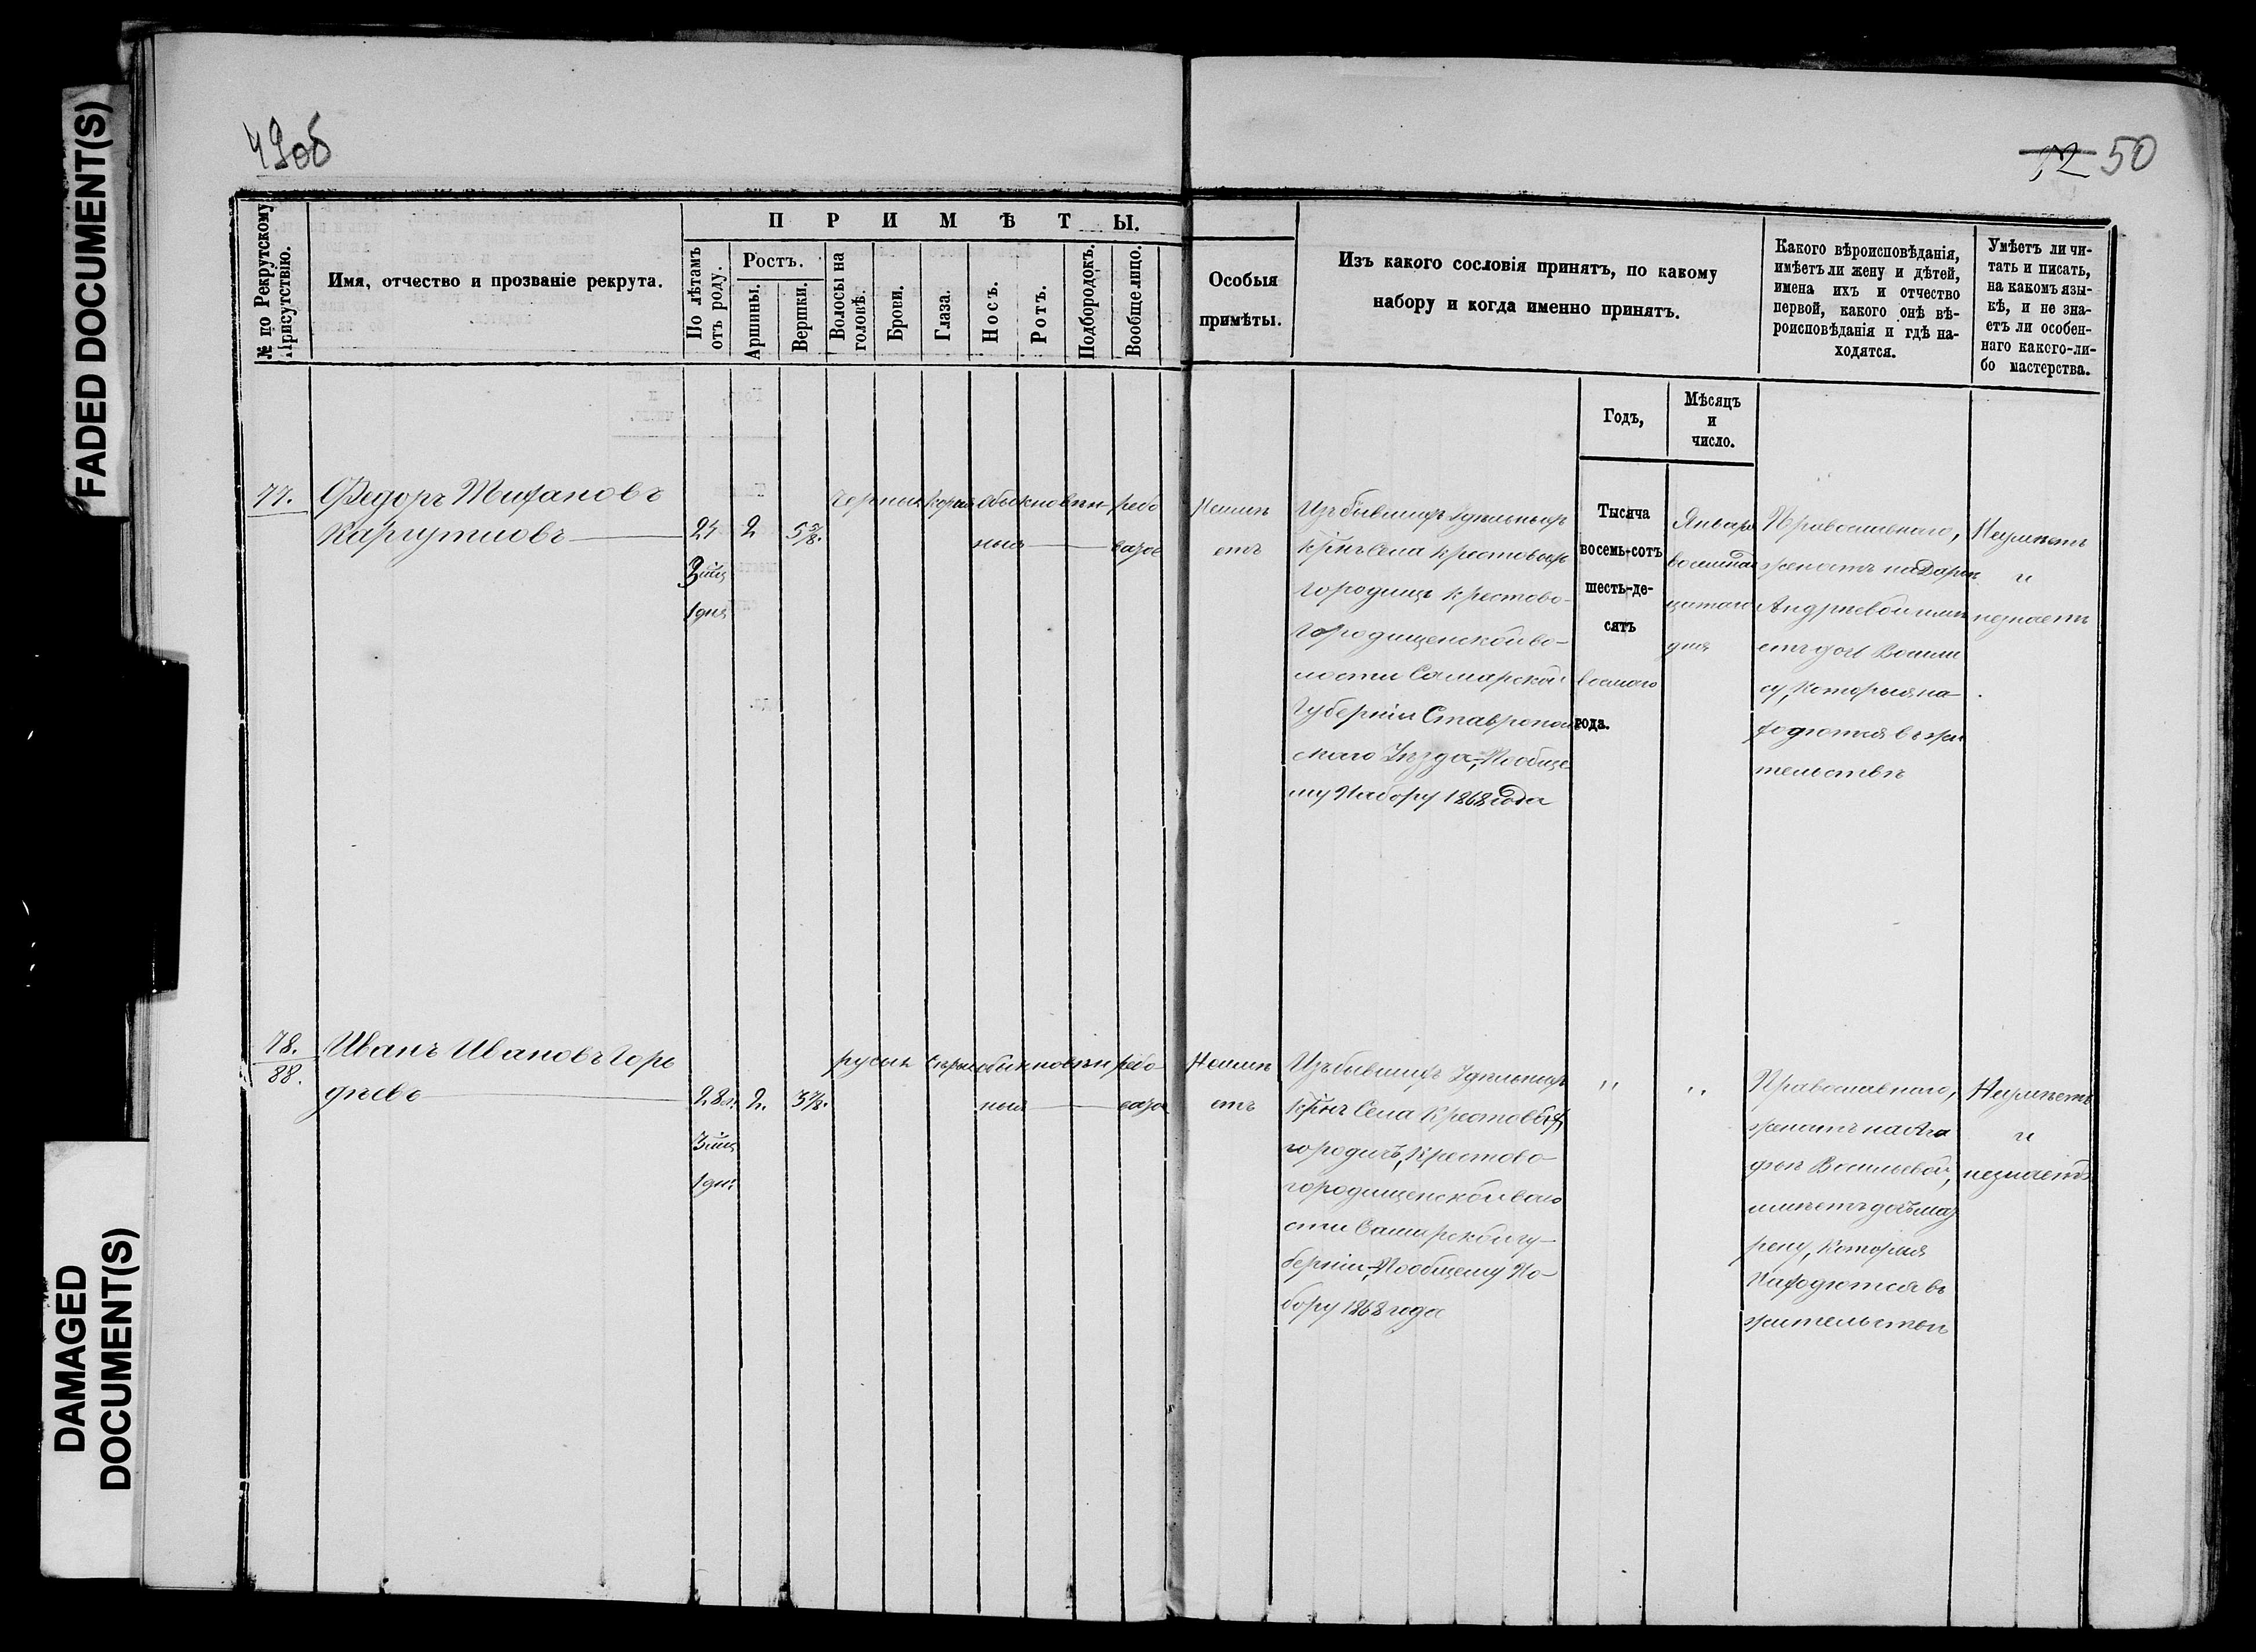 FADED DOCUMENT(S)
DAMAGED
DOCUMENT(S)
49об
50
№ по Рекрутскому
Присутствію.
Имя, отчество и прозваніе рекрута.
ПРИМѢТЫ.
По лѣтамъ
отъ роду.
Ростъ.
Аршины.
Вершки.
Волосы на
головѣ.
Брови.
Глаза.
Носъ.
Ротъ.
Подбородокъ.
Вообще лицо.
Особыя
примѣты.
Изъ какого сословія принятъ, по какому
набору и когда именно принятъ.
Какого вѣроисповѣданія,
имѣетъ ли жену и дѣтей,
имена ихъ и отчество
первой, какого онѣ вѣ-
роисповѣданія и гдѣ на-
ходятся.
Умѣетъ ли чи-
тать и писать,
на какомъ язы-
кѣ, и не зна-
етъ ли особен-
наго какого-ли-
бо мастерства.
Годъ,
Мѣсяцъ
и
число.
77.
Федоръ
21
2
5 5/8.
1 дня
обыкновен
ныя
рябо
ватое
Неимѣ
етъ
Изъ бывшихъ Удѣльныхъ
крнъ Села Крестовыхъ
городищъ Крестово-
городищенской во-
лости Самарской
Губерніи Ставрополь
скаго Уѣзда, По обще
му Набору 1868 года
Тысяча
восемь-сотъ
шесть-де-
сятъ
восьмаго
года.
Января
дня
Православнаго,
женатъ на Дарьѣ
Андреевой имѣ
етъ
которыя на-
ходются въ жи
тельствѣ
Неумѣетъ
и
незнаетъ
78.
88.
Иванъ Ивановъ Горо
28 л.
2.
3 7/8.
3 мца
1 дня
русыя
сѣрые
обыкновен
ныя
рябо-
ватое
Неимѣ
етъ
Изъ бывшихъ Удѣльныхъ
крнъ Села Крестовыхъ
городищъ, Крестово-
городищенской воло
сти Самарской гу-
берніи, По общему На-
бору 1868 года
,,
,,
Православнаго,
женатъ на Ага
фьѣ Васильевой,
имѣетъ дочь Мат
рену, которыя
Находются въ
жительствѣ
Неумѣетъ
и
незнаетъ